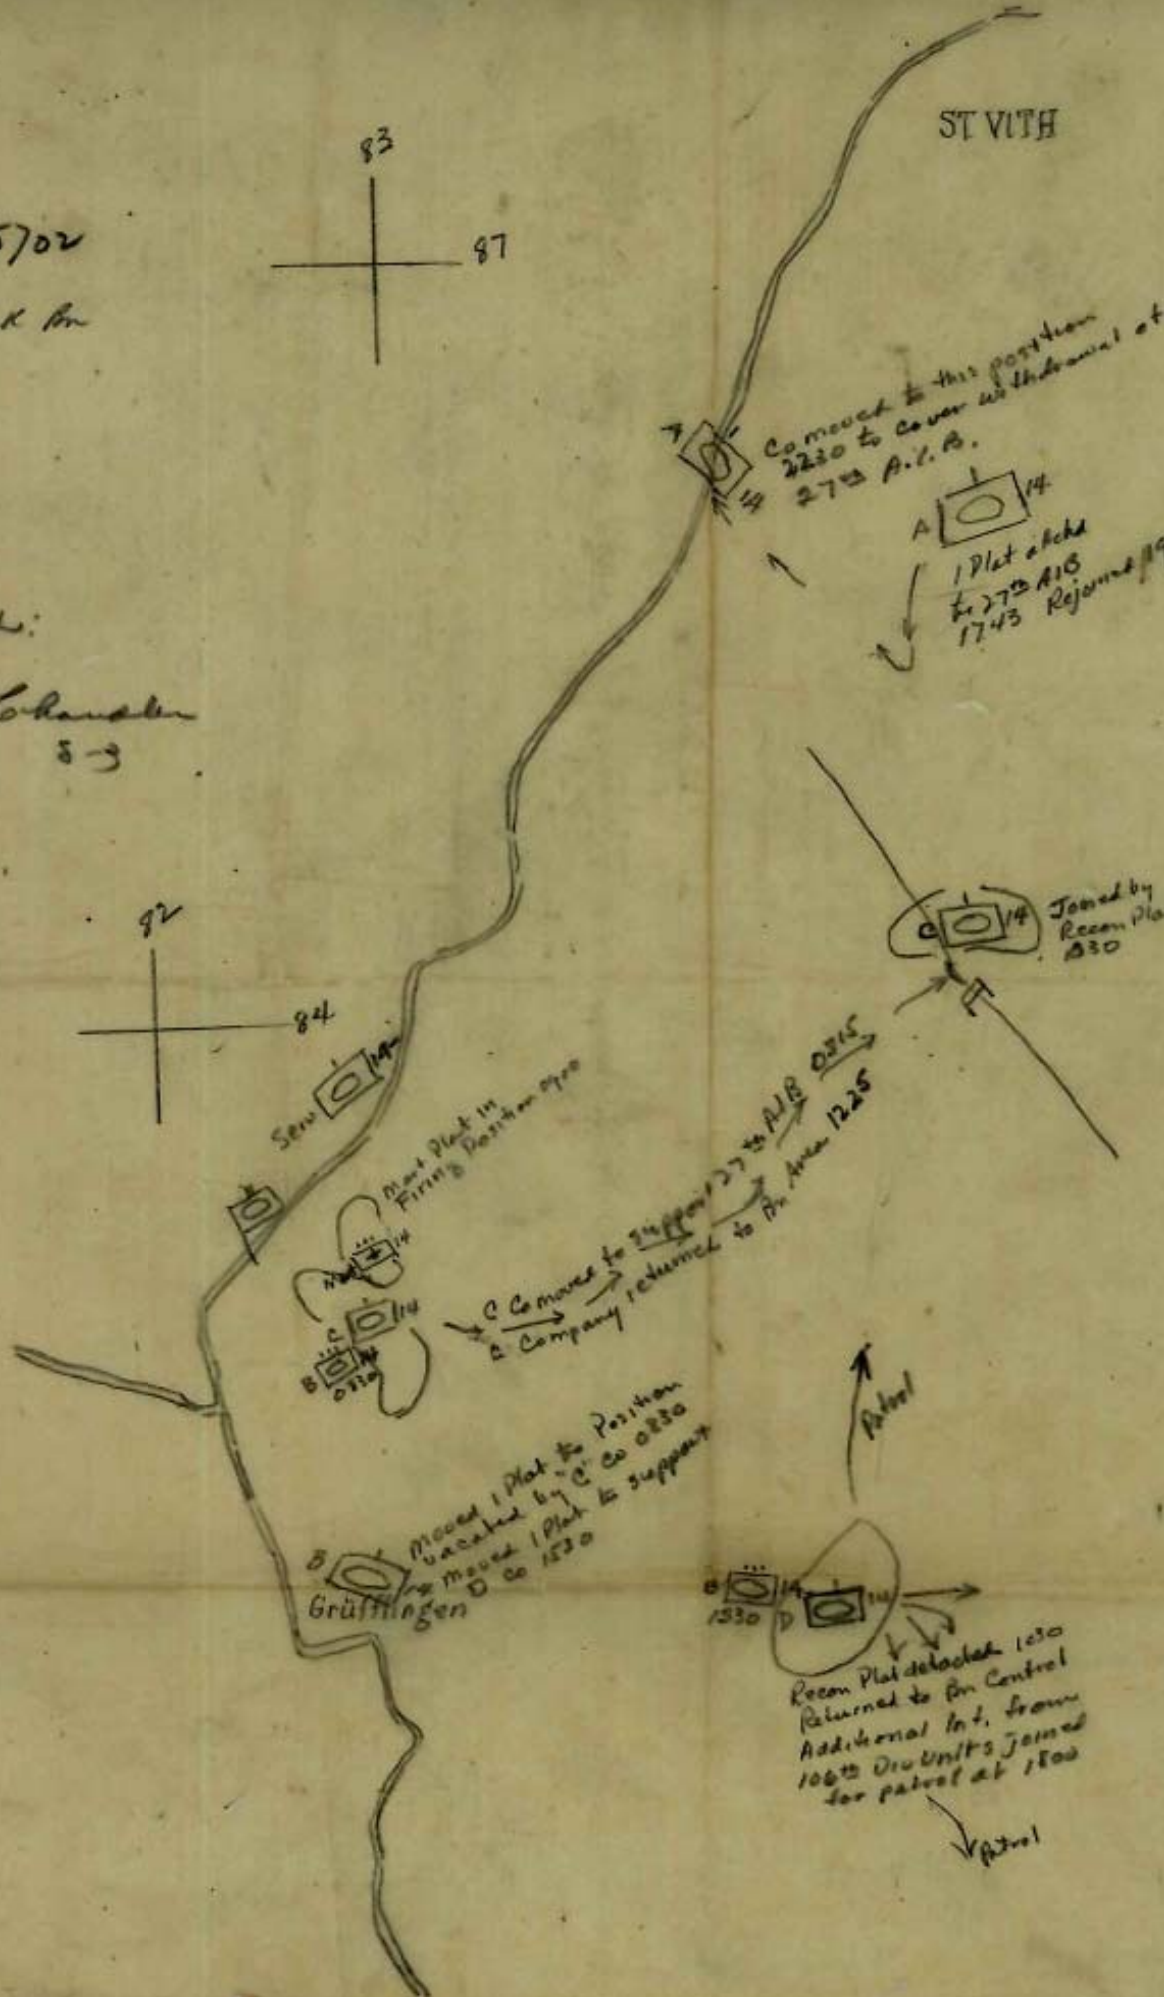 ST VITH
83
87
5702
K Bn
Co moved to this position
2230 to cover withdrawal of
27th A.I.B.
A 14
1 Plat attchd
to 27th AIB
1743 Rejoined
L:
Chandler
S-3
C 14
Joined by
Recon Pla
82
84
Serv 14
Mort Plat in
Firing Position
14
C 14
B 14
0830
C Co moved to support 27th AIB 0315
C Company returned to Bn Area 1225
Patrol
Moved 1 Plat to Position
vacated by "C" Co 0830
moved 1 Plat to support
D Co 1530
B
Grüfflingen
B 14
1530 D 14
Recon Plat detached 1030
Returned to Bn Control
Additional Inf. from
106th Div Units joined
for patrol at 1800
Patrol